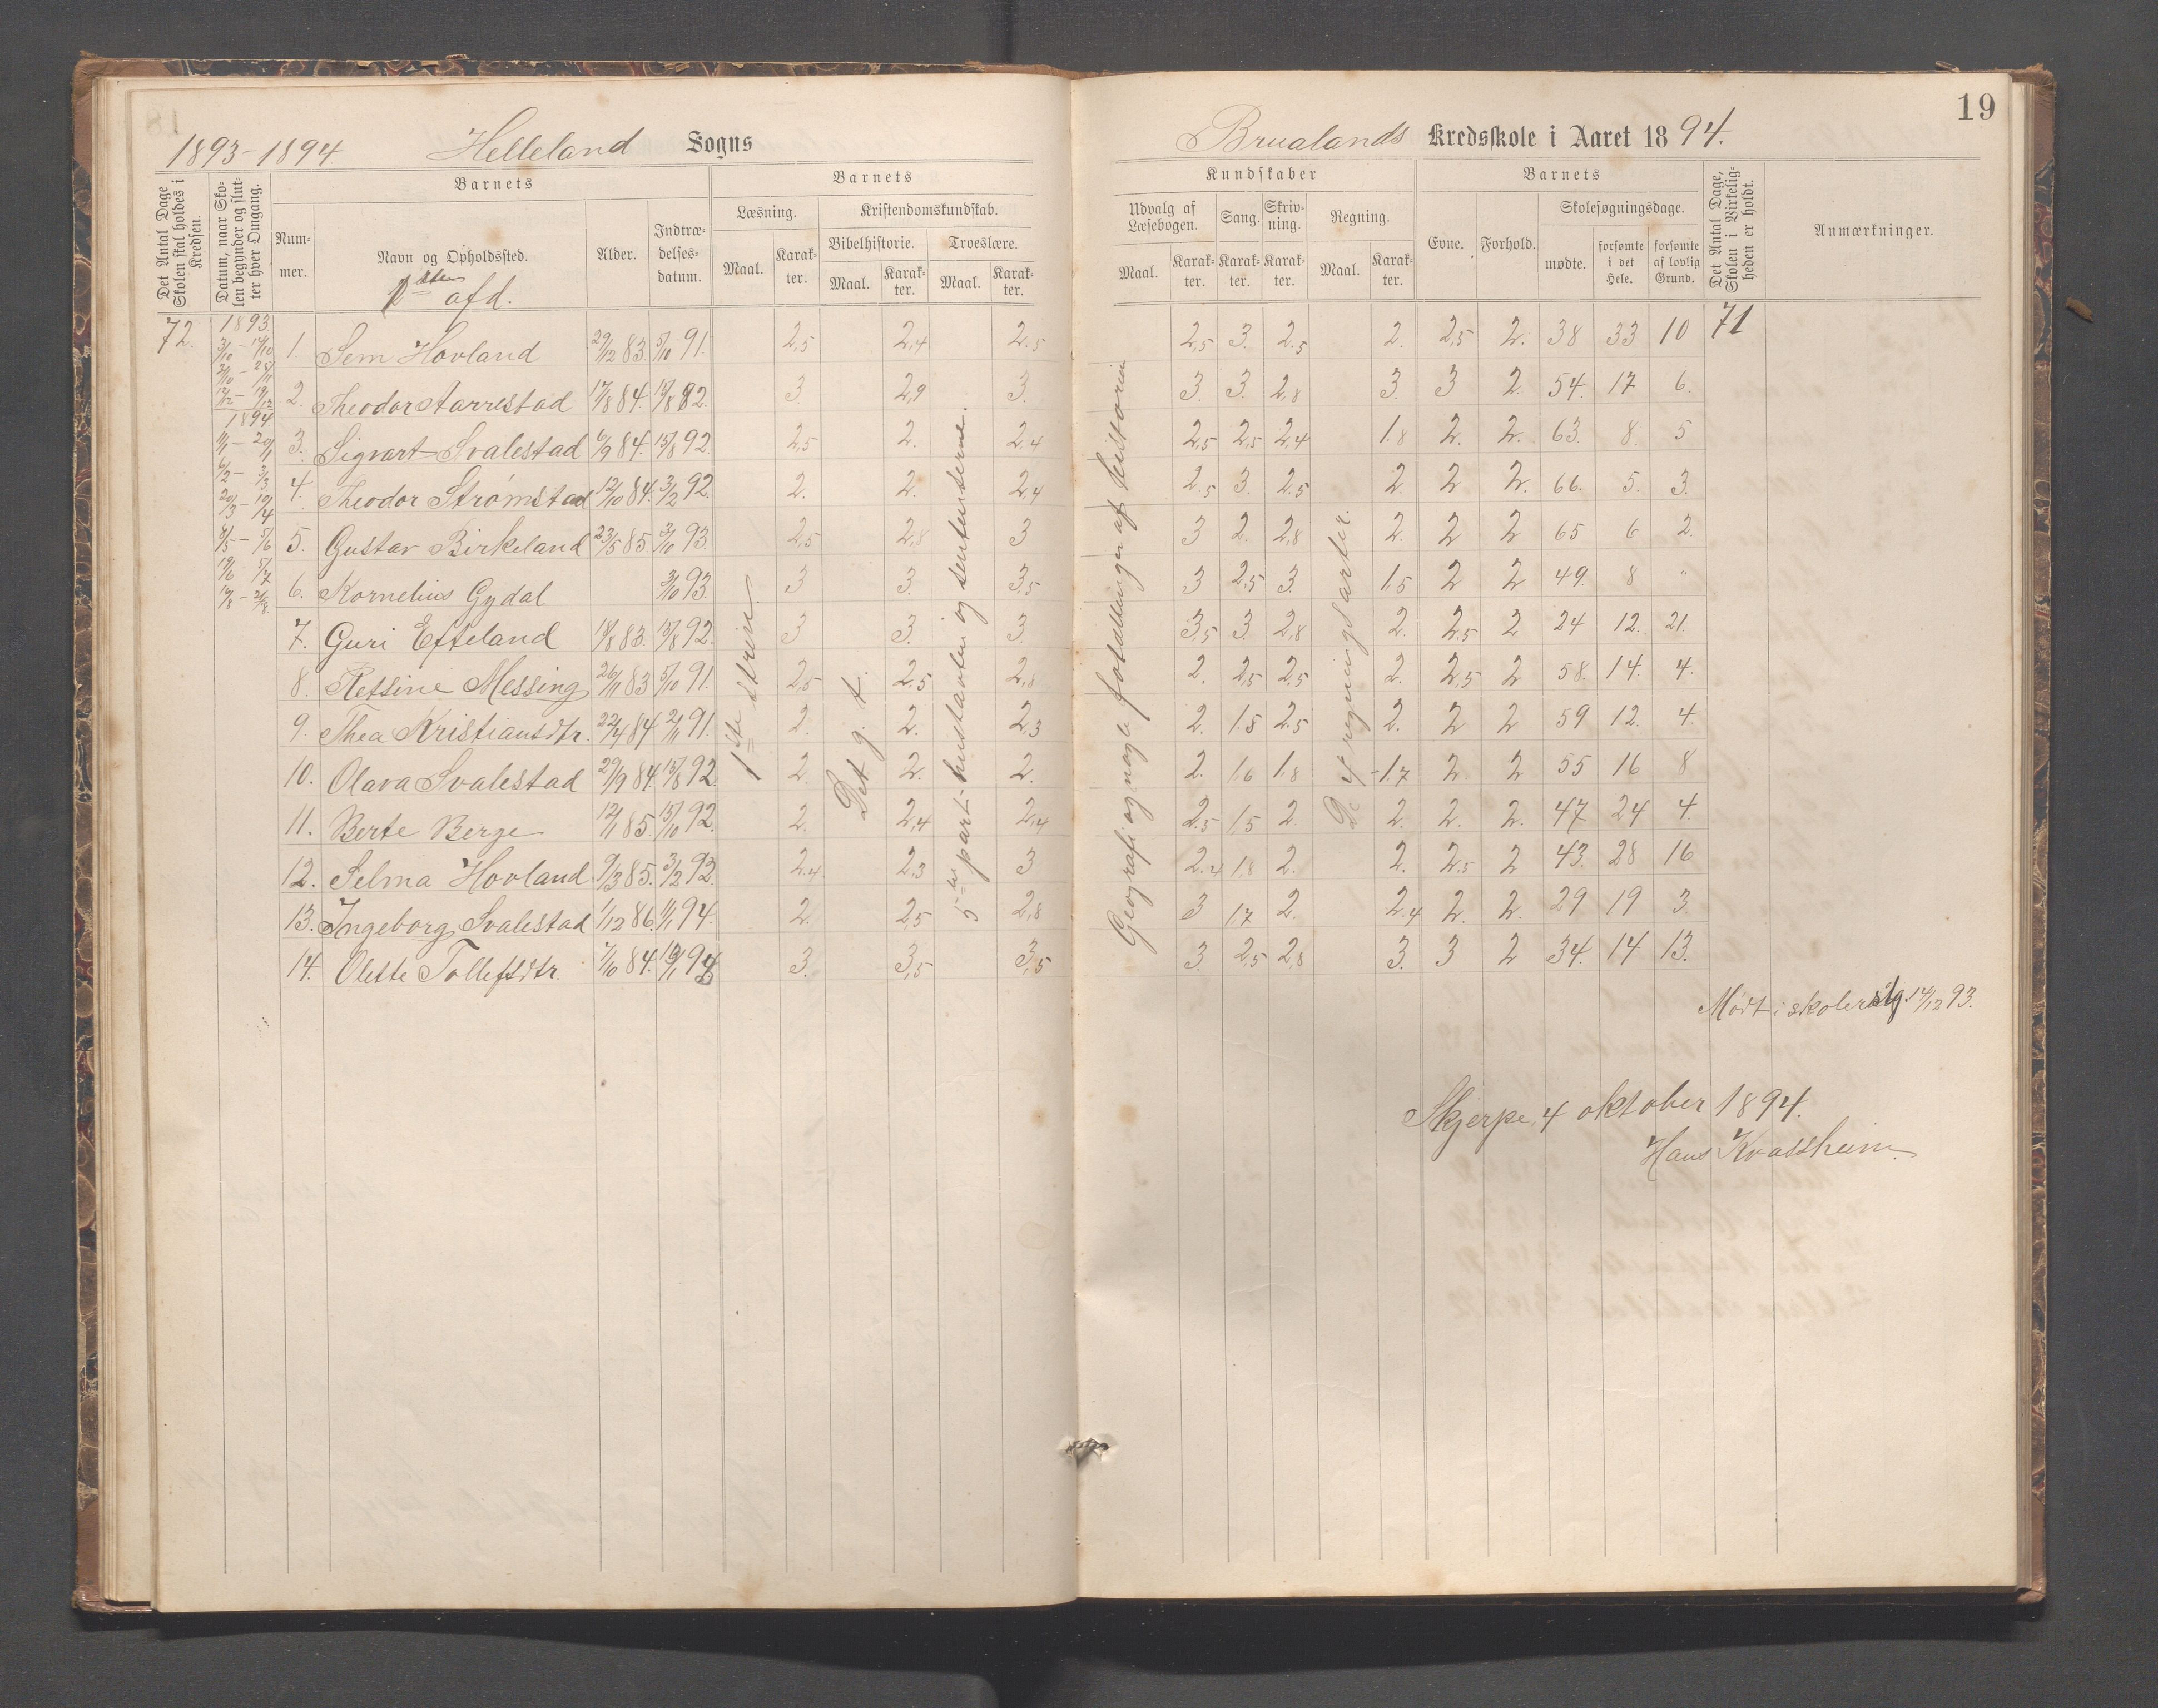 1893-1894 Helleland Sogns
Det Antal Dage Skolen skal holdes i Kredsen.
Datum, naar Skolen begynder og slutter hver Omgang.
Barnets
Nummer.
Navn og Opholdssted.
Alder.
Indtrædelsesdatum.
Barnets
Læsning.
Kristendomskundskab.
Bibelhistorie.
Troeslære.
Maal. Karakter. Maal. Karakter. Maal. Karakter.
afd.
72. 1893
1894
1. Sem Hovland 29/12 83. 5/10 91. 2,5 2,4 2.5
2. Theodor Aarrestad 17/8 84. 2. 3. 2,9 3.
3. Sigvart Svalestad 6/9 84. 15/8 92. 2,5 2. 2.4
4. Theodor Strømstad 12/10 84. 3/2 92. 2. 2. 2,4
5. Gustav Birkeland 23/5 85. 3/10 93. 2,5 2,8 3
6. Kornelius Gydal 3/10 93. 3 3. 3,5
7. Guri Efteland 18/8 83. 15/8 92. 3 3. 3.
8. Retsine Messing 26/11 83 5/10 91. 2,5 2.5 2,8
9. Thea Kristiansdtr. 22/4 84 2/11 91. 2. 2. 2,3
10. Olava Svalestad 29/9 84. 15/8 92. 2. 2. 2.
11. Berte Berge 12/1 85. 15/10 92. 2. 2,4 2,4
12. Selma Hovland 9/3 85. 3/2 92. 2.4 2,3 3
13. Ingeborg Svalestad 1/12 86. 11/1 94. 2. 2,5 2,8
14. Olette Tollefsdtr. 7/10 84. 3. 3,5 3,5
1ste trin
Det g. t.
5te part
19
Brualands Kredsskole i Aaret 1894.
Kundskaber
Udvalg af Læsebogen.
Sang.
Skrivning.
Regning.
Maal. Karakter. Karakter. Karakter. Maal. Karakter.
Barnets
Evne. Forhold.
Skolesøgningsdage.
mødte. forsømte i det Hele. forsømte af lovlig Grund.
Det Antal Dage, Skolen i Virkeligheden er holdt.
Anmærkninger.
2,5 3. 2.5 2. 2,5 2. 38 33 10 71
3. 3. 2,8 3. 3 2. 54. 17 6.
2,5 2,5 2,4 1.8 2. 2. 63. 8. 5
2.5 3. 2.5 2. 2 2. 66. 5. 3.
3 2. 2,8 2. 2 2 65 6 2.
3 2,5 3. 1,5 2 2 49. 8 "
3,5 3. 2,8 2. 2.5 2 24 12. 21.
2. 2,5 2.5 2. 2,5 2 58. 14. 4.
2. 1.8 2.5 2. 2 2 59 12. 4.
2. 1.6 1.8 1.7 2. 2 55 16 8
2.5 1,5 2. 2. 2. 2. 47 24 4.
2.4 1.8 2. 2. 2.5 2 43. 28 16
3 1,7 2. 2.4 2. 2. 29 19 3.
3. 2,5 2,8 3. 3 2 34. 14 13.
Geografi og nogle fortællinger af historien
De 4 regningsarter.
Mødt i 14/12 93.
Skjerpe, 4 oktober 1894.
Hans Kvassheim.